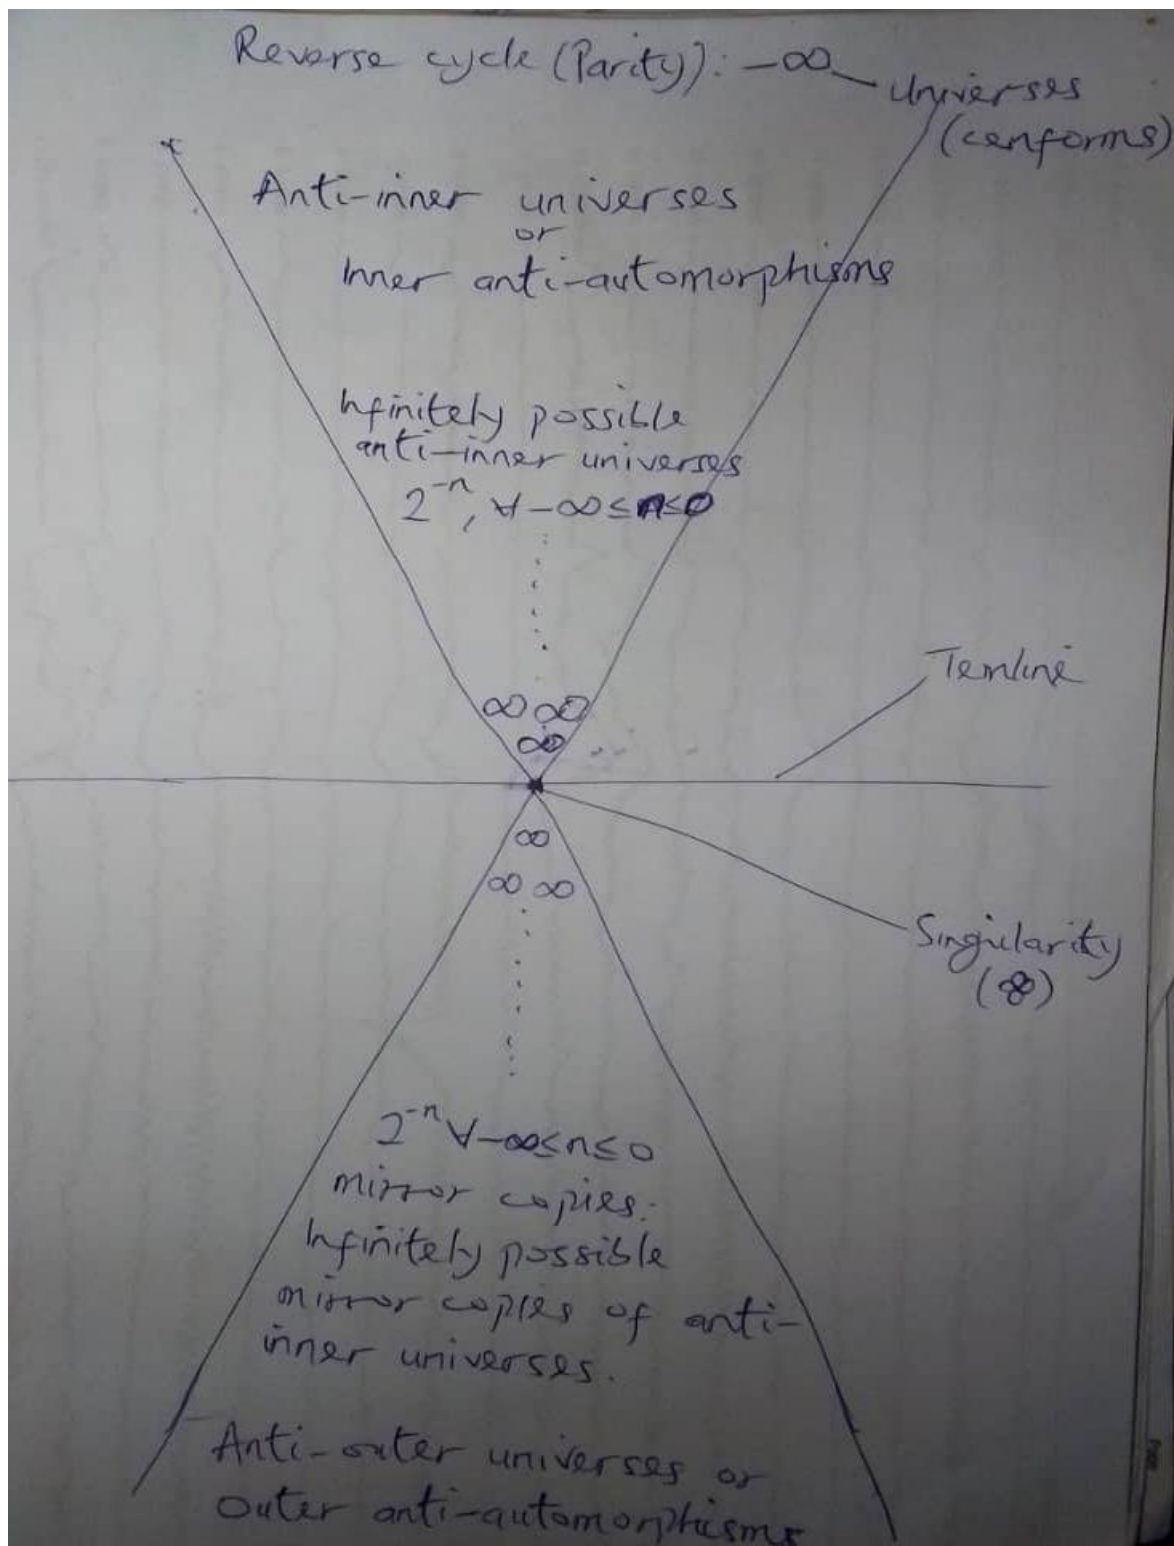 Reverse cycle (Parity): -∞ Universes
(conforms)
Anti-inner universes
or
Inner anti-automorphisms
Infinitely possible
anti-inner universes
2⁻ⁿ, ∀ -∞ ≤ n ≤ 0
∞ ∞
∞
Singularity
(∞)
∞
∞ ∞
2⁻ⁿ ∀ -∞ ≤ n ≤ 0
mirror copies.
Infinitely possible
mirror copies of anti-
inner universes.
Anti-outer universes or
outer anti-automorphisms